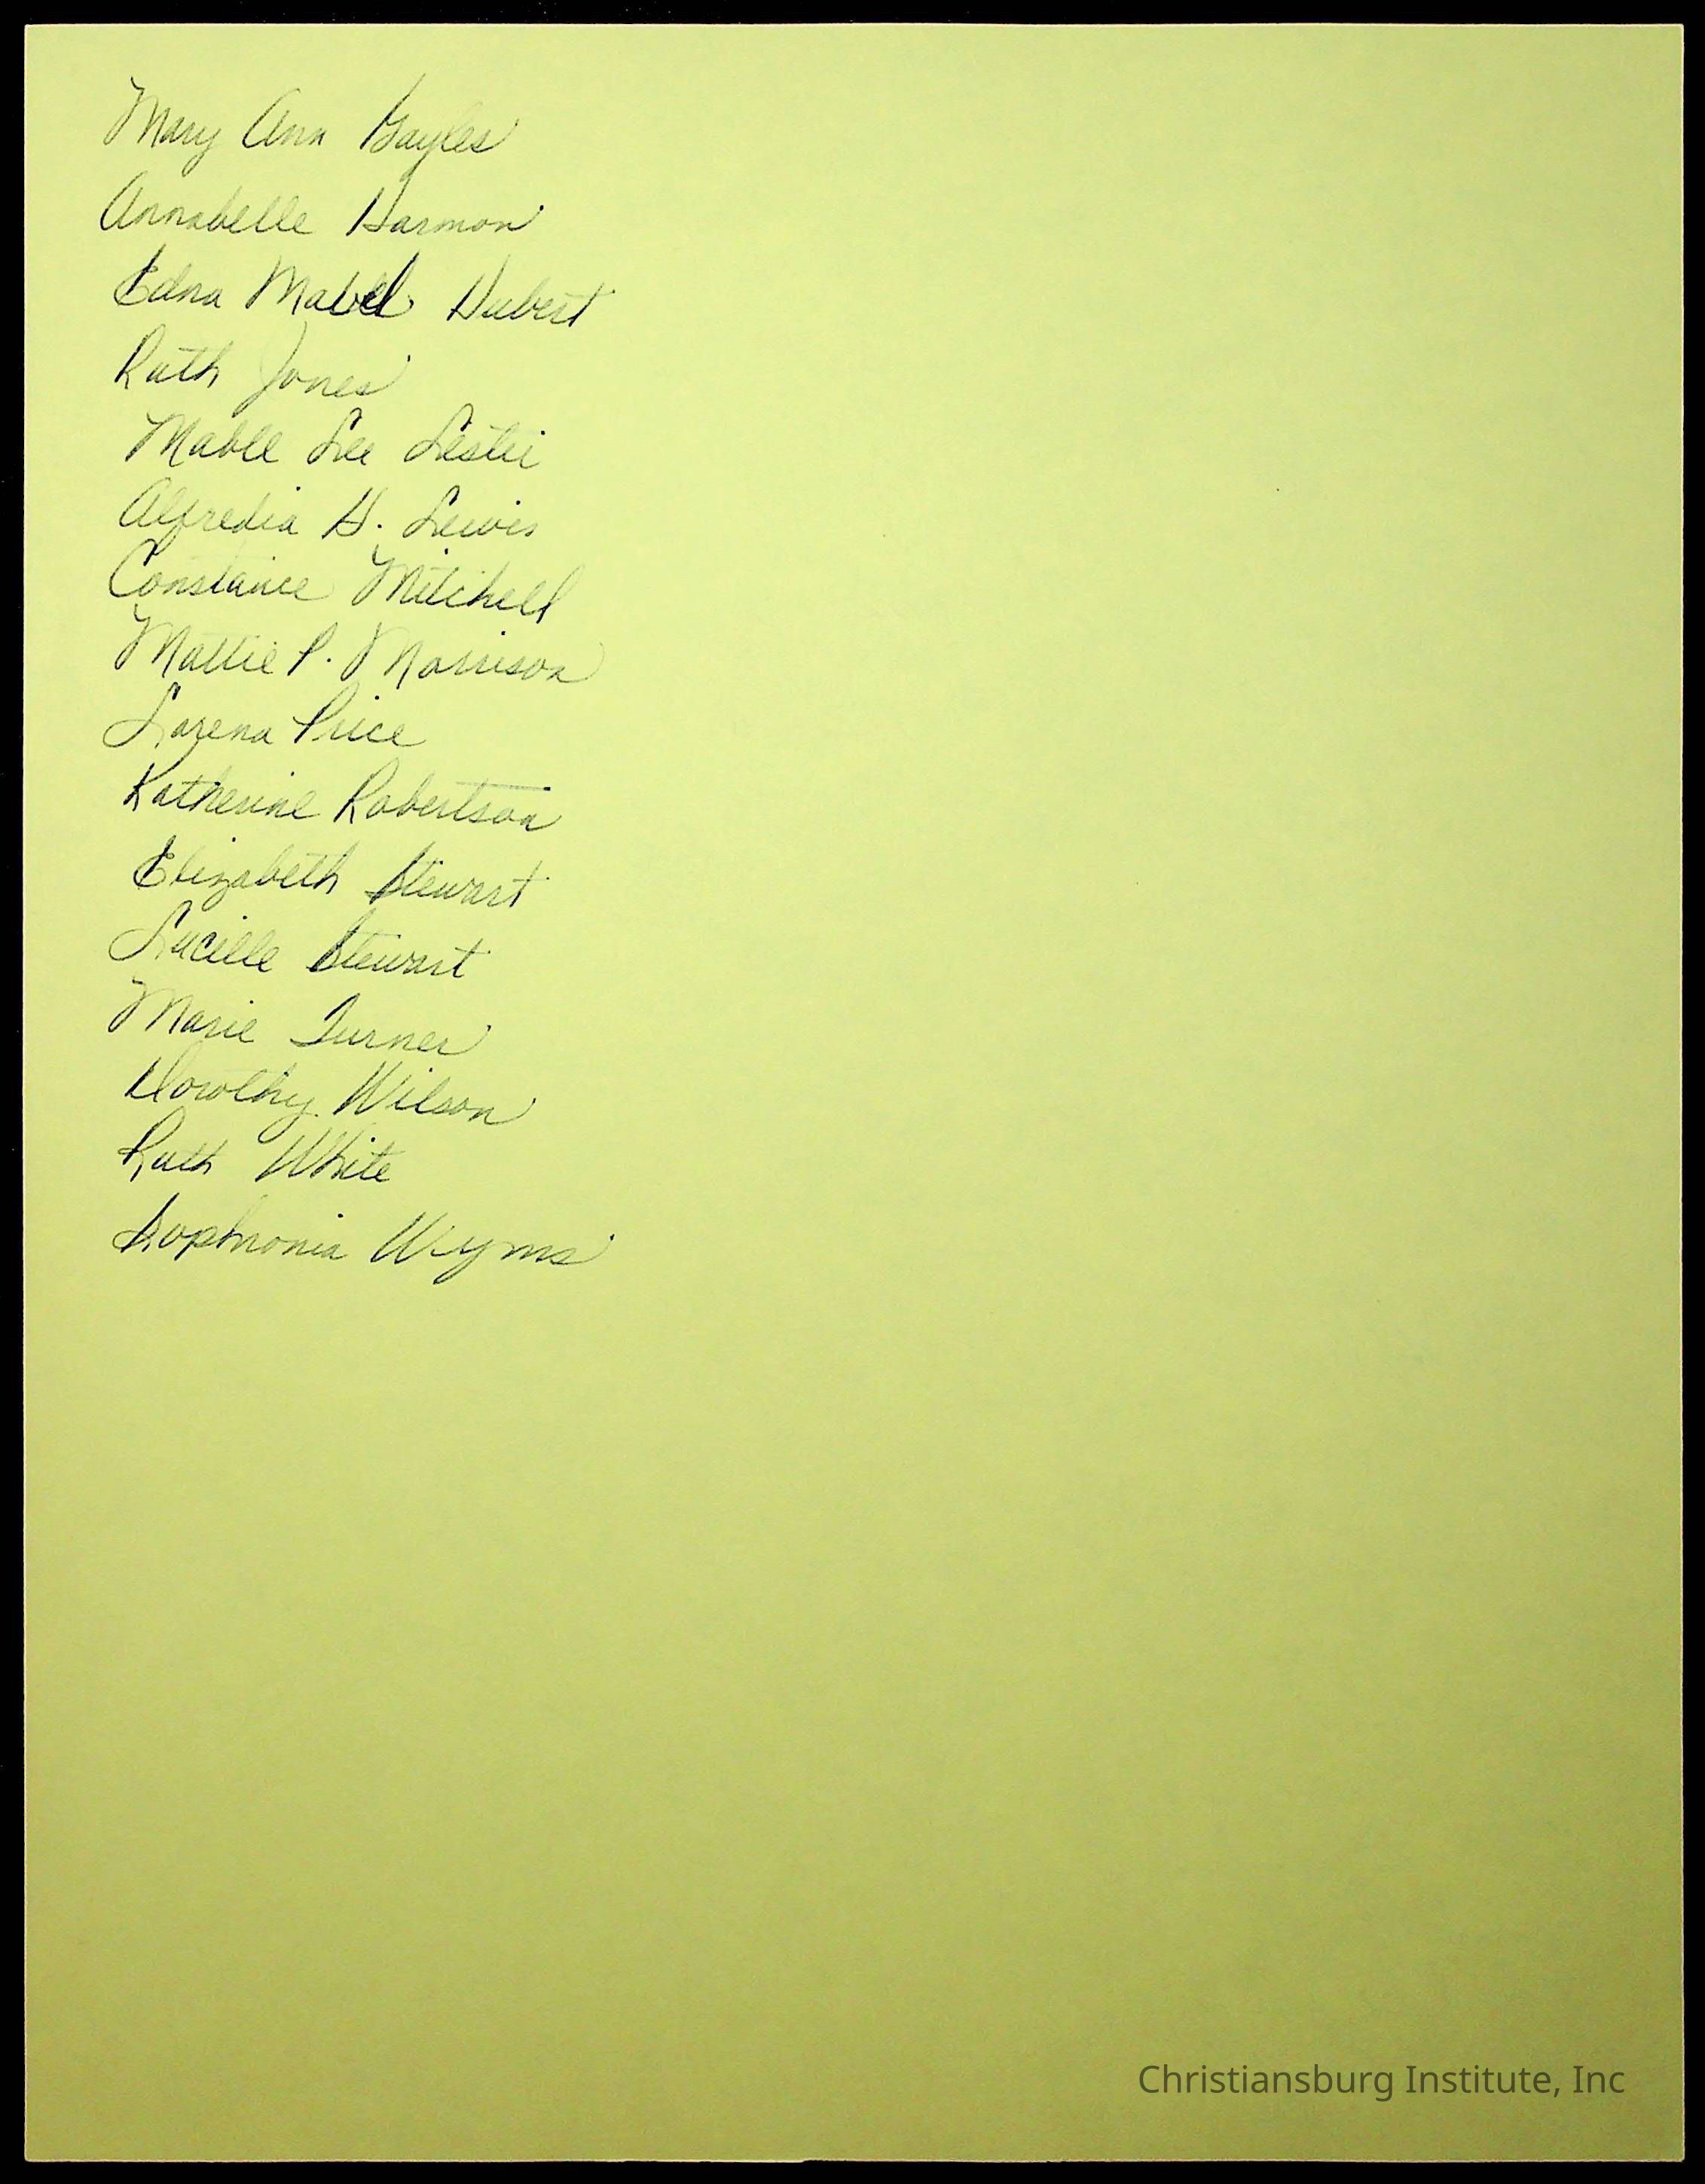 Mary Ann Gayles
Annabelle Harmon
Edna Mabel Hubert
Ruth Jones
Mable Lee Leslie
Alfredia H. Lewis
Constance Mitchell
Mattie P. Morrison
Lorena Price
Katherine Robertson
Elizabeth Stewart
Lucille Stewart
Marie Turner
Dorothy Wilson
Ruth White
Sophronia Wyms
Christiansburg Institute, Inc